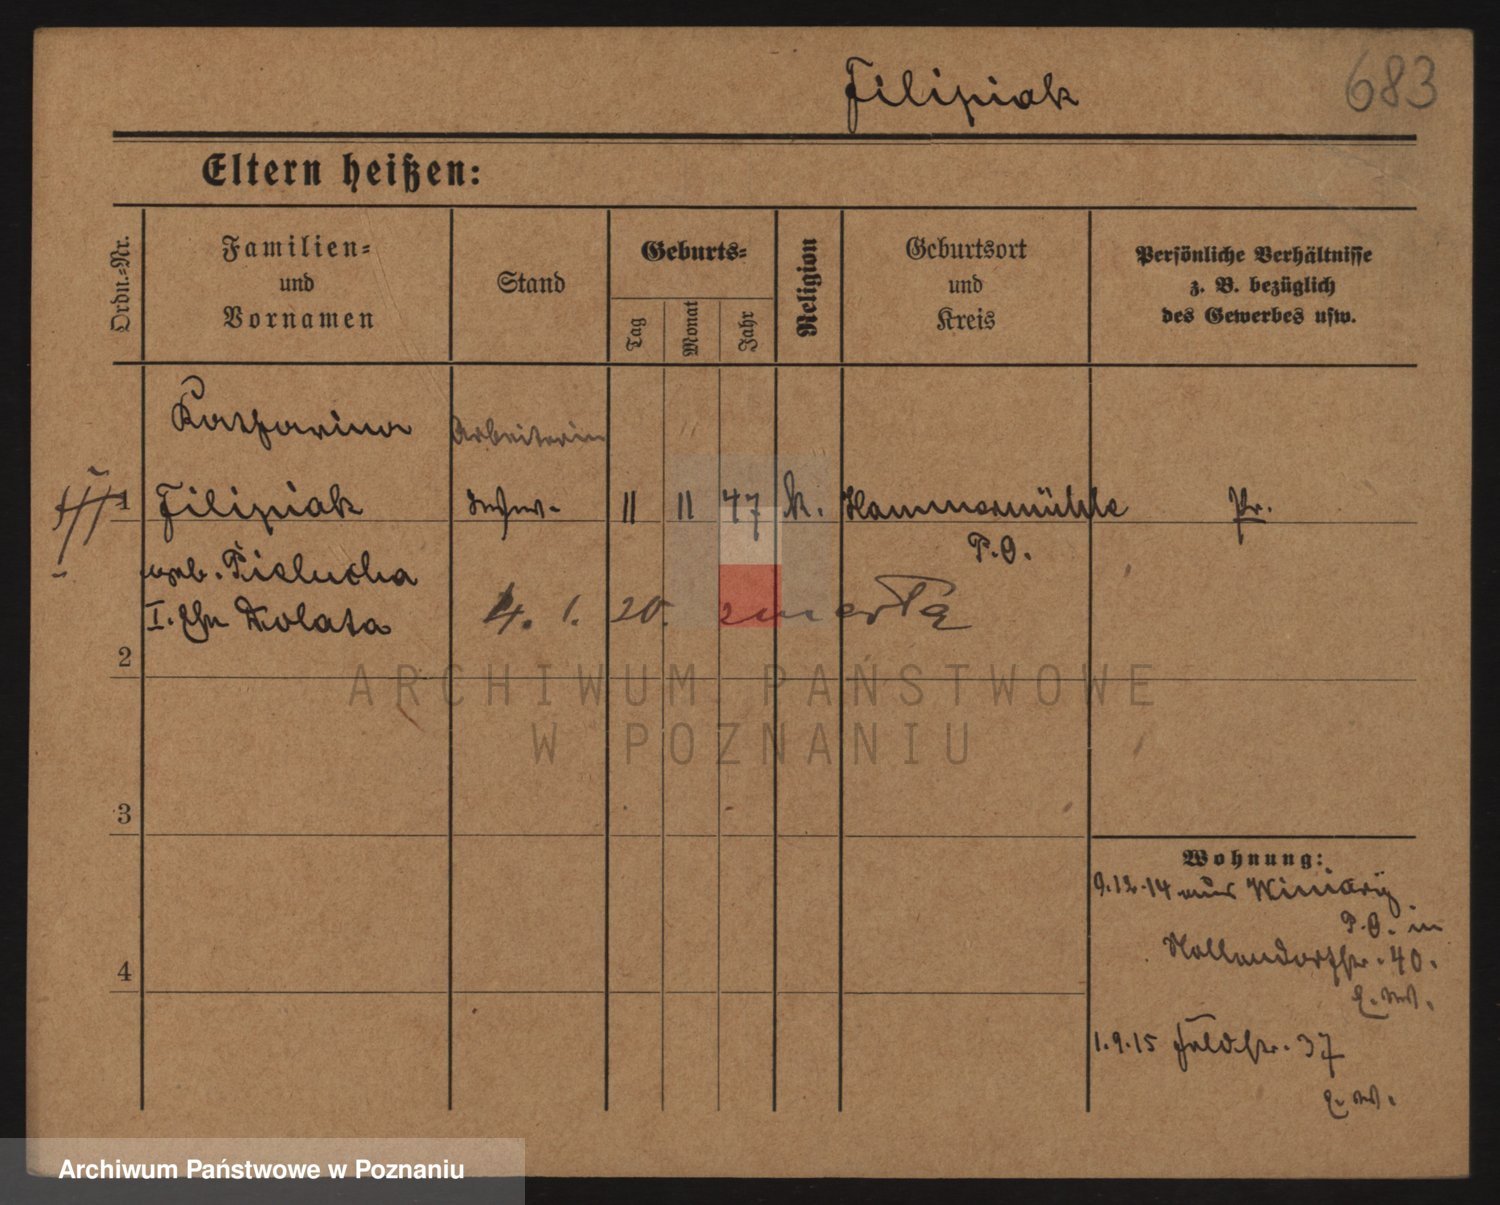 Filipiak
683
Eltern heißen:
Ordn.-Nr.
Familien-
und
Vornamen
Stand
Geburts-
Tag
Monat
Jahr
Religion
Geburtsort
und
Kreis
Persönliche Verhältnisse
z. B. bezüglich
des Gewerbes usw.
Katharina Arbeiterin
1 Filipiak 11 11 47 k. Hammermühle Pr.
P.O.
geb. Pielucha
I. Ehe Kolata
4. 1. 20. zmarła
2
ARCHIWUM PAŃSTWOWE
W POZNANIU
3
Wohnung:
9.12.14 aus Winiary
P.O. in
Nollendorfstr. 40.
4
1.9.15 Feldstr. 37
Archiwum Państwowe w Poznaniu